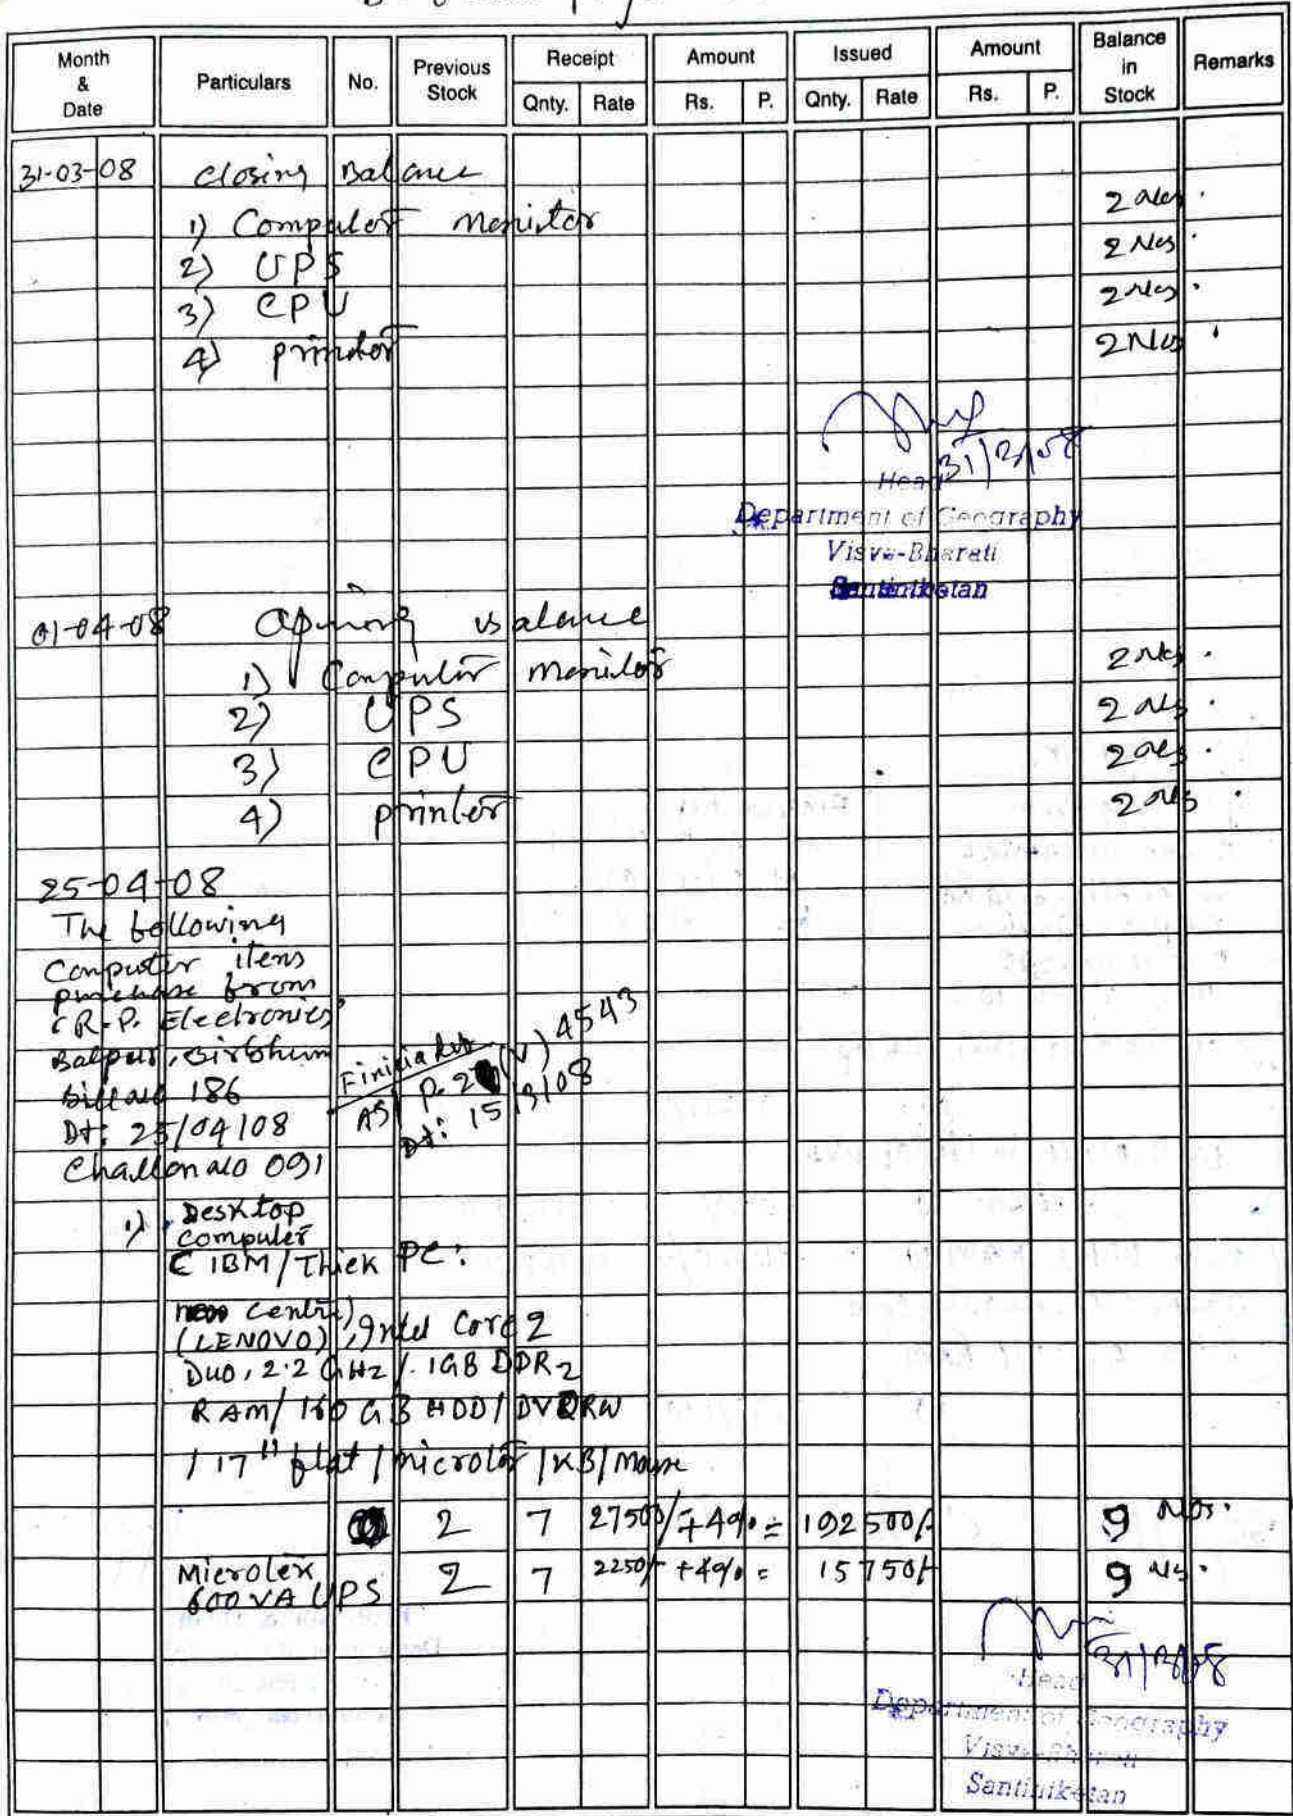 Month & Date Particulars No. Previous Stock Receipt Qnty. Rate Amount Rs. P. Issued Qnty. Rate Amount Rs. P. Balance in Stock Remarks
31-03-08 Closing Balance
1) Computer Monitor 2 Nos.
2) UPS 2 Nos.
3) CPU 2 Nos.
4) Printer 2 Nos.
31/3/08
Head
Department of Geography
Visva-Bharati
Santiniketan
01-04-08 Opining Balance
1) Computer Monitor 2 Nos.
2) UPS 2 Nos.
3) CPU 2 Nos.
4) Printer 2 Nos.
25-04-08
The following
Computer items
purchase from
R.P. Electronics
Birbhum
Bill No 186
Dt: 25/04/08
Challan No 091
4543
Dt: 15
1) Desktop
computer
IBM / Thick PC:
Centre)
(LENOVO), Intel Core 2
Duo, 2.2 GHz / 1GB DDR2
RAM/ 160 GB HDD/ DVDRW
/ 17" flat / Microlex / KB/ Mouse
2 7 27500/ +4% = 192500/- 9 Nos.
Microlex
600 VA UPS 2 7 2250/- +4% = 15750/- 9 Nos.
Head
Department of Geography
Visva-Bharati
Santiniketan